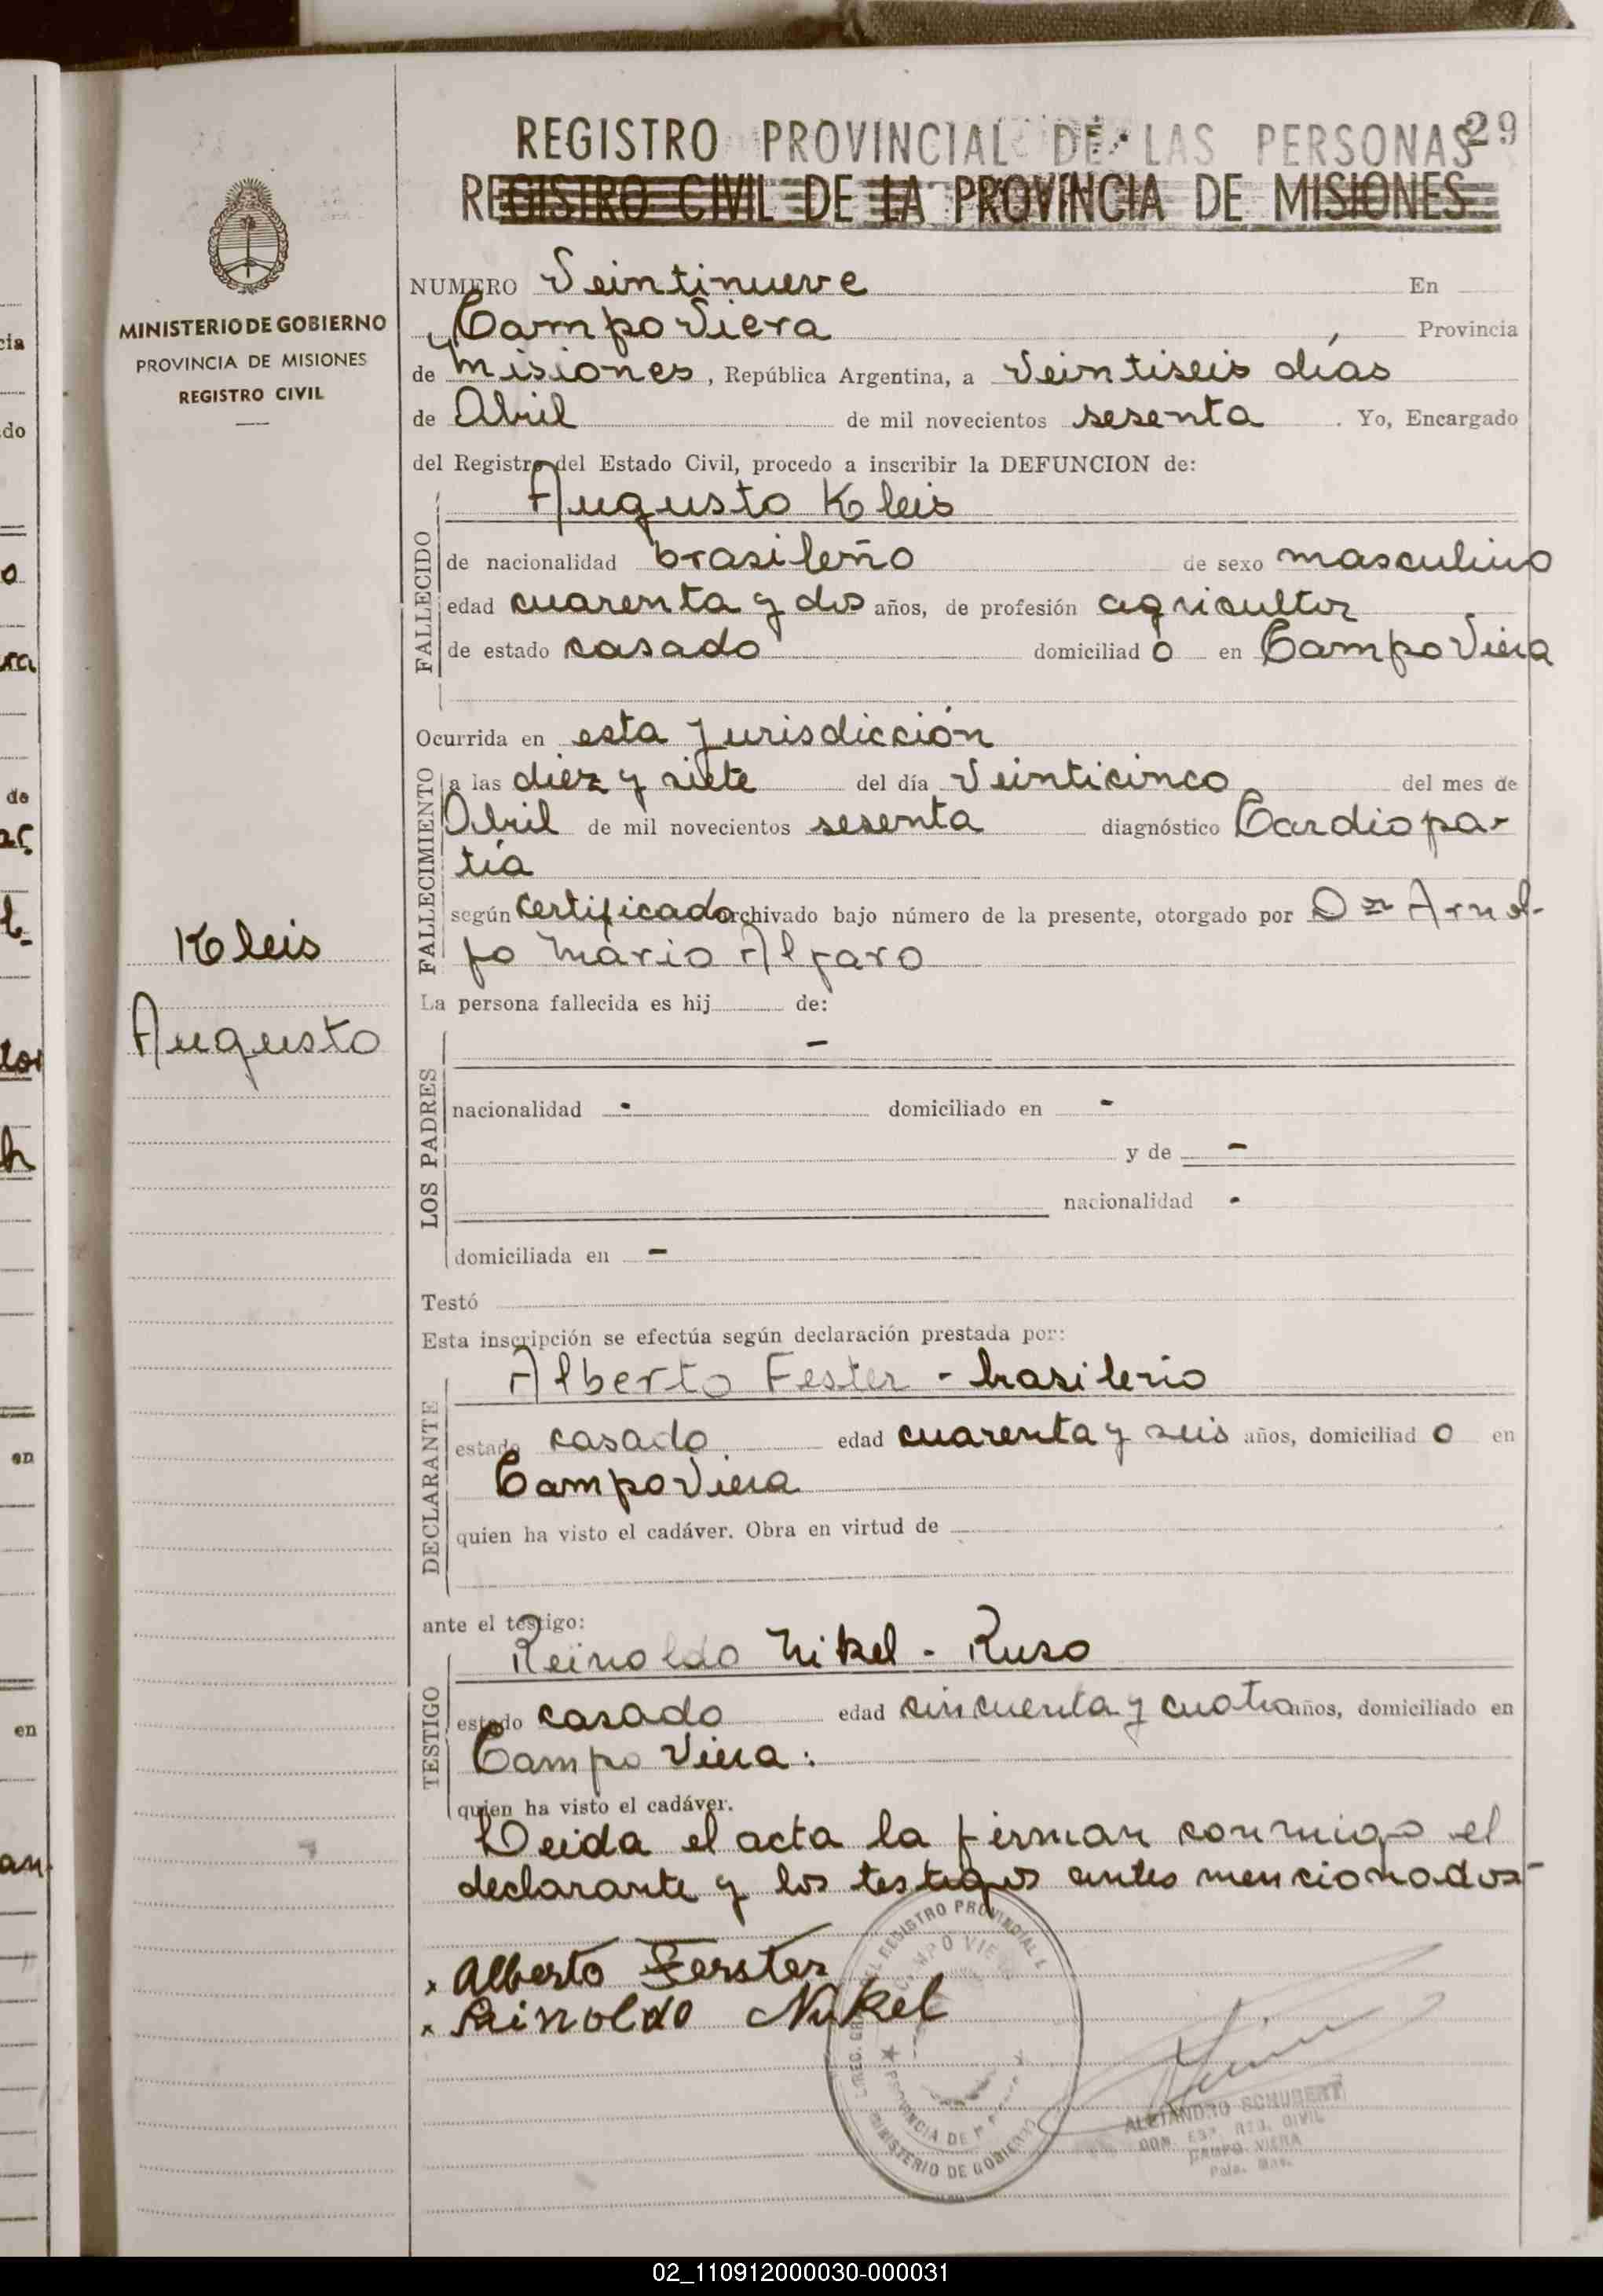 REGISTRO PROVINCIAL DE LAS PERSONAS
29
REGISTRO CIVIL DE LA PROVINCIA DE MISIONES
MINISTERIO DE GOBIERNO
PROVINCIA DE MISIONES
REGISTRO CIVIL
NUMERO Veintinueve En
Campo Viera, Provincia
de Misiones, República Argentina, a Veintiseis días
de Abril de mil novecientos sesenta. Yo, Encargado
del Registro del Estado Civil, procedo a inscribir la DEFUNCION de:
Augusto Kleis
FALLECIDO
de nacionalidad brasileño de sexo masculino
edad cuarenta y dos años, de profesión agricultor
de estado casado domiciliad o en Campo Viera
Ocurrida en esta Jurisdicción
FALLECIMIENTO
a las diez y siete del día Veinticinco del mes de
Abril de mil novecientos sesenta diagnóstico Cardiopa-
tía
según certificado archivado bajo número de la presente, otorgado por Dn Arnol-
fo Mario Alfaro
Kleis
Augusto
La persona fallecida es hij de:
-
LOS PADRES
nacionalidad - domiciliado en -
y de -
nacionalidad -
domiciliada en -
Testó
Esta inscripción se efectúa según declaración prestada por:
Alberto Fester - brasilerio
DECLARANTE
estado casado edad cuarenta y seis años, domiciliad o en
Campo Viera
quien ha visto el cadáver. Obra en virtud de
ante el testigo:
Reinoldo Nikel - Ruso
TESTIGO
estado casado edad cincuenta y cuatro años, domiciliado en
Campo Viera.
quien ha visto el cadáver.
Leida el acta la firman conmigo el
declarante y los testigos antes mencionados-
x Alberto Ferster
x Reinoldo Nikel
REGISTRO PROVINCIAL
CAMPO VIERA
PROVINCIA DE
MINISTERIO DE GOBIERNO
ALEJANDRO SCHUBERT
REG. CIVIL
CAMPO VIERA
02_110912000030-000031